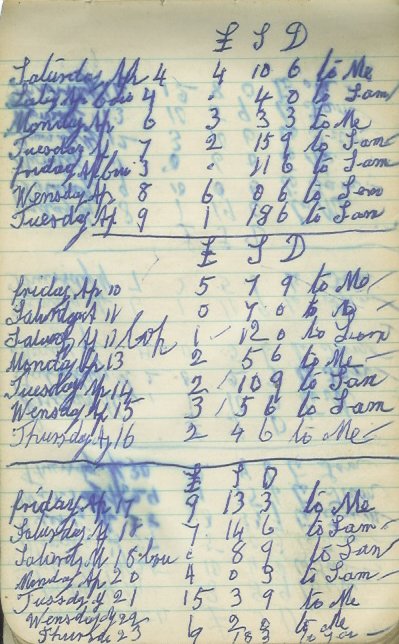 £ S D
Saturday Ap 4 4 10 6 to Me
Saty Ap 4 . 4 0 to Sam
Monday Ap 6 3 3 3 to Me
Tuesday Ap 7 2 15 9 to Sam
friday Ap 3 . 11 6 to Sam
Wensday Ap 8 6 0 6 to Sam
Tuesday Ap 9 1 18 6 to Sam
£ S D
friday Ap 10 5 7 9 to Me
Saturday A 11 0 7 0 to
Saturdy A 11 1 12 0 to Sam
Monday Ap 13 2 5 6 to Me
Tuesday Ap 14 2 10 9 to Sam
Wensday Ap 15 3 5 6 to Sam
Thursday Ap 16 2 4 6 to Me
£ S D
friday Ap 17 9 13 3 to Me
Saturday A 18 7 14 6 to Sam
Saturdy A 18 . 8 9 to Sam
Monday Ap 20 4 0 3 to Sam
Tuesday A 21 15 3 9 to Me
Wensday 22 1 2 to Me
Thursday 23 9 18 3